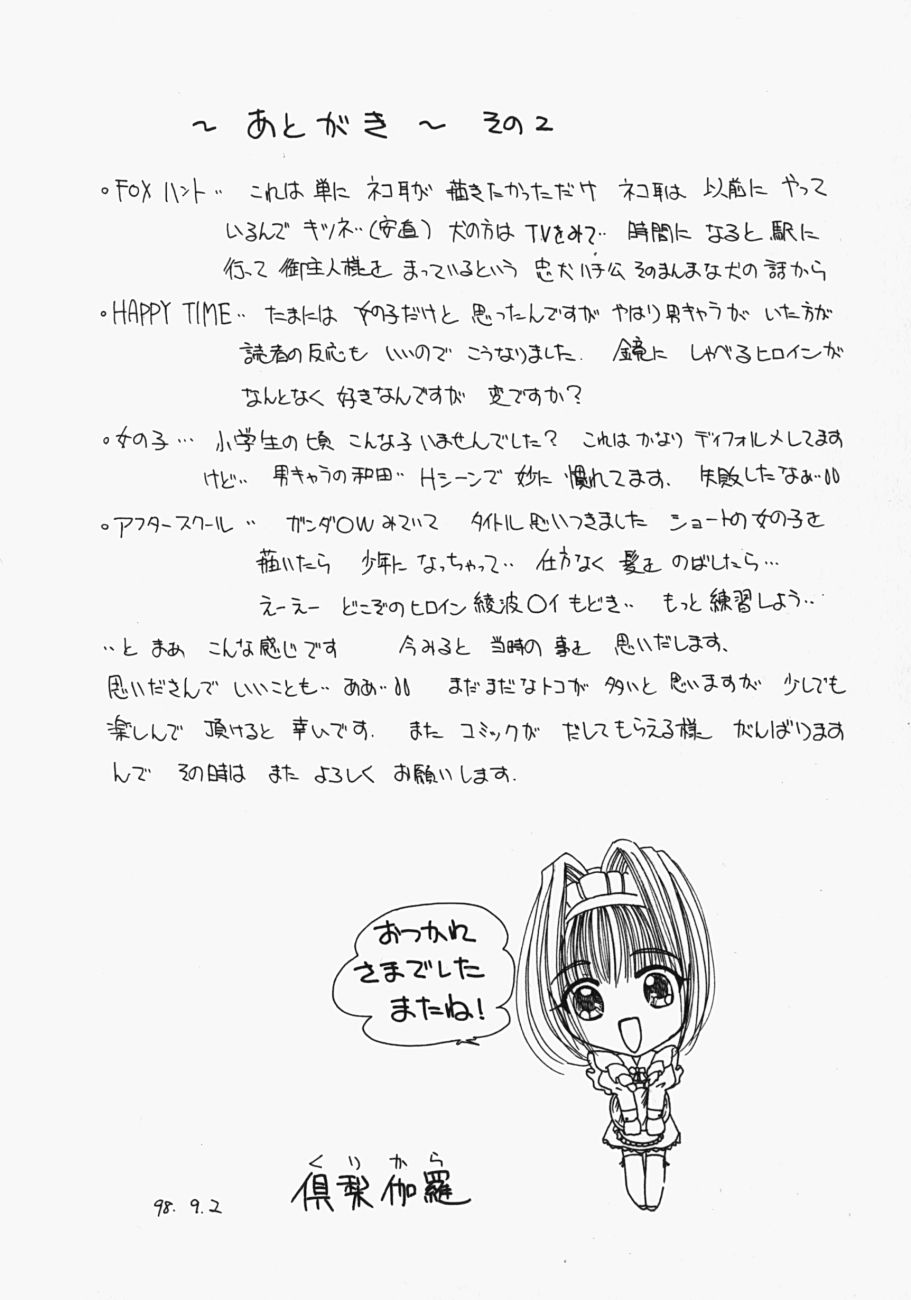 ～ あとがき ～ その2
。FOXハント‥ これは単に ネコ耳が 描きたかっただけ ネコ耳は 以前に やって
いるんで キツネ‥(安直) 犬の方は TVをみて‥ 時間に なると 駅に
行って 御主人様を まっているという 忠犬ハチ公 そのまんまな犬の話から
。HAPPY TIME‥ たまには 女の子だけと 思ったんですが やはり男キャラが いた方が
読者の反応も いいので こうなりました. 鏡に しゃべるヒロインが
なんとなく 好きなんですが 変ですか?
。女の子… 小学生の頃 こんな子いませんでした? これは かなり ディフォルメしてます
けど‥ 男キャラの和田‥ Hシーンで 妙に 慣れてます、 失敗したなぁ‥
。アフタースクール ‥ ガンダ〇Wみていて タイトル思いつきました ショートの女の子を
描いたら 少年に なっちゃって‥ 仕方なく 髪を のばしたら…
えーえー どこぞのヒロイン綾波〇イもどき‥ もっと練習しよう‥
‥と まぁ こんな感じです 今みると 当時の 事を 思いだします、
思いださんで いいことも‥ ああ‥ まだまだなトコが 多いと 思いますが 少しでも
楽しんで 頂けると 幸いです. また コミックが だしてもらえる様 がんばります
んで その時は また よろしく お願いします.
おつかれ
さまでした
またね!
くりから
倶梨伽羅
98. 9. 2